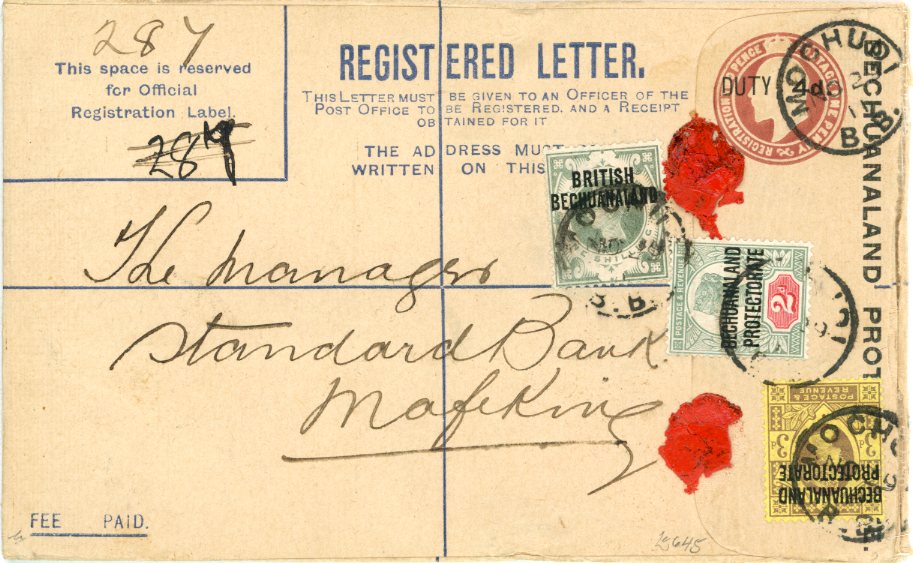 287
This space is reserved
for Official
Registration Label.
287
REGISTERED LETTER.
THIS LETTER MUST BE GIVEN TO AN OFFICER OF THE
POST OFFICE TO BE REGISTERED, AND A RECEIPT
OBTAINED FOR IT
THE ADDRESS MUST
WRITTEN ON THIS
DUTY 4d.
MOCHUDI
B.
BECHUANALAND PROT
BRITISH
BECHUANALAND
POSTAGE & REVENUE
2d
BECHUANALAND
PROTECTORATE
The Manager
Standard Bank
Mafeking
POSTAGE &
REVENUE
3d 3d
BECHUANALAND
PROTECTORATE
FEE PAID.